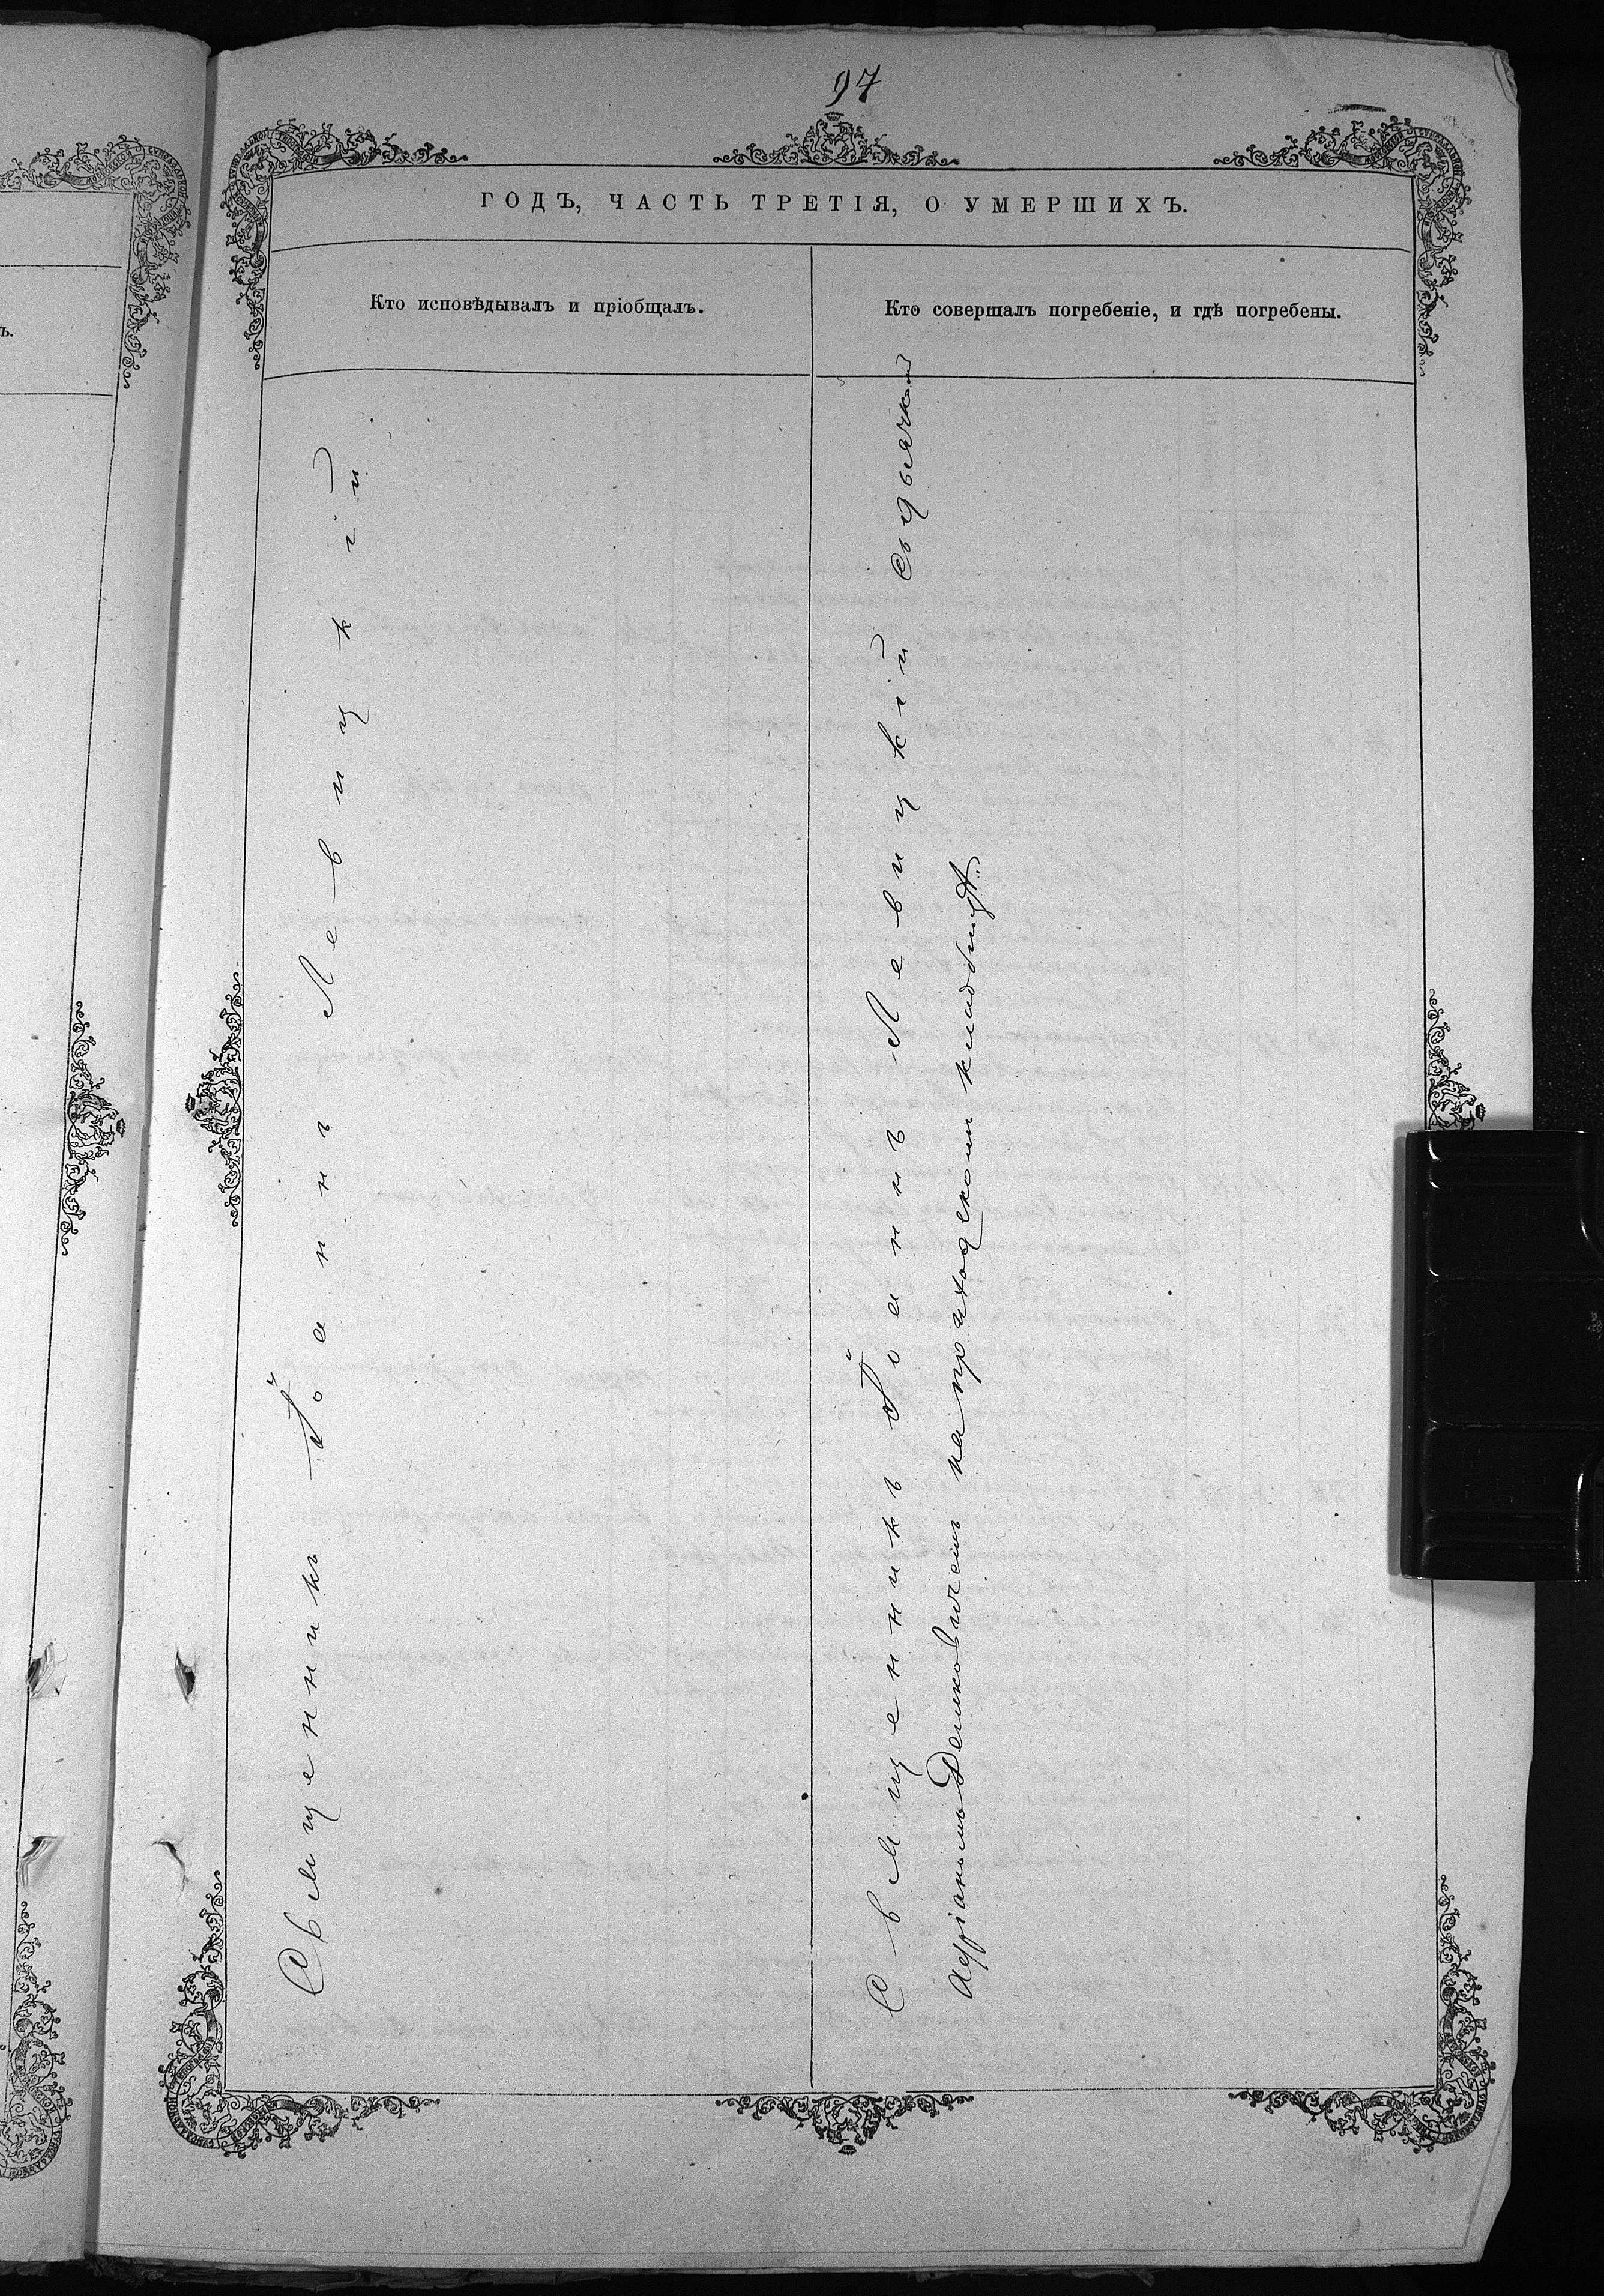 97
ГОДЪ, ЧАСТЬ ТРЕТІЯ, О УМЕРШИХЪ.
Кто исповѣдывалъ и пріобщалъ.
Кто совершалъ погребеніе, и гдѣ погребены.
ъ.
Священникъ Іоаннъ Левицкій
Священникъ Іоаннъ Левицкій Съ дьячкомъ
Адріаномъ Демковичемъ на приходскомъ кладбищѣ.